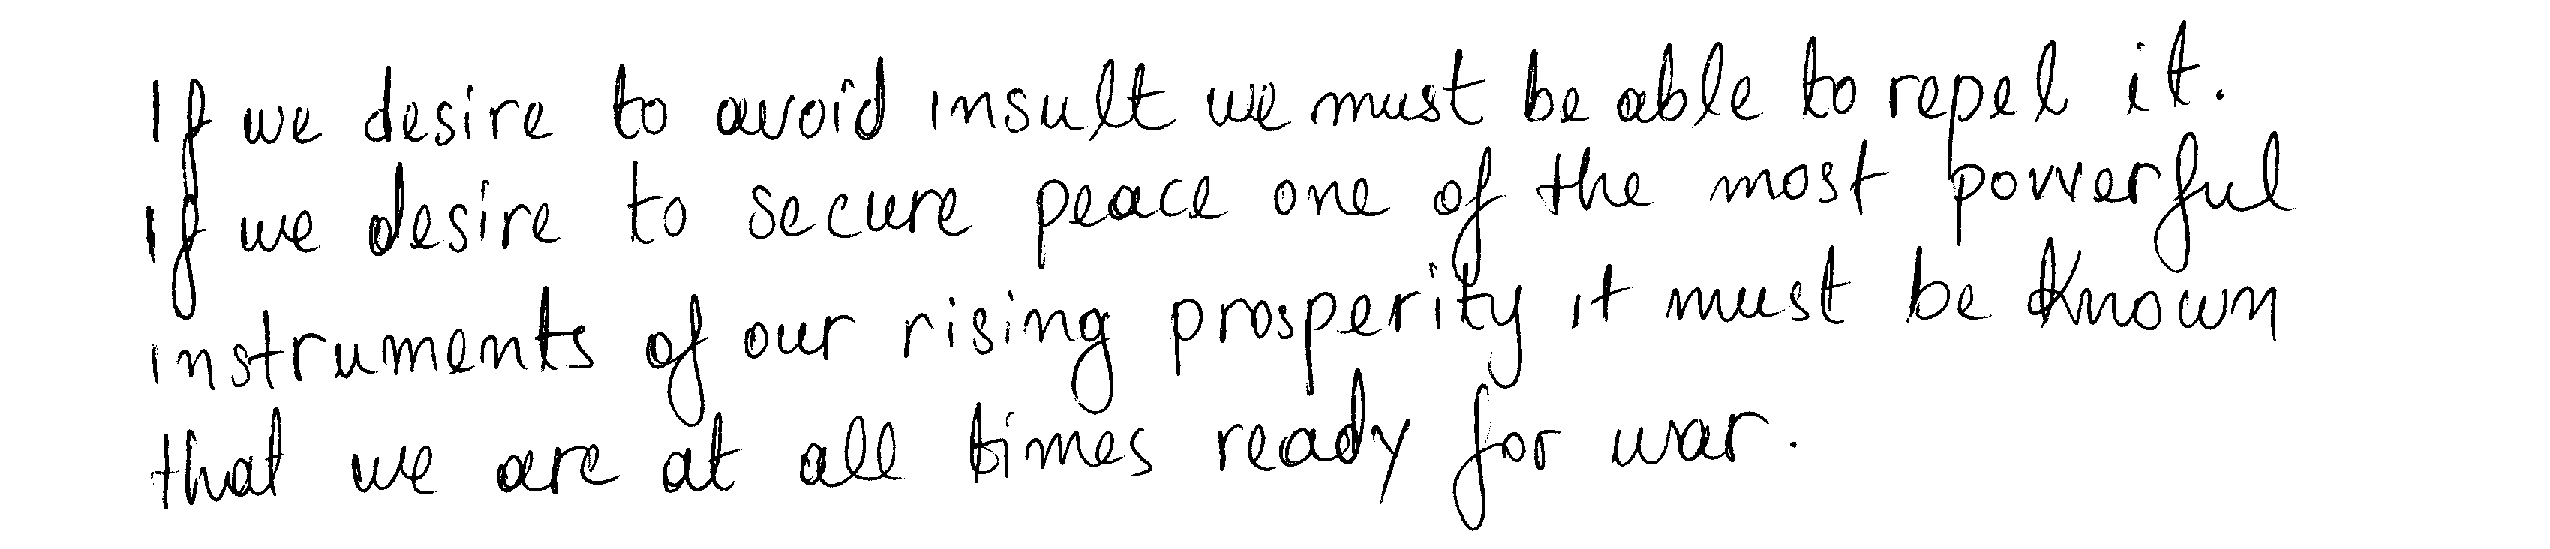 If we desire to avoid insult we must be able to repel it.
if we desire to secure peace one of the most powerful
instruments of our rising prosperity it must be known
that we are at all times ready for war.